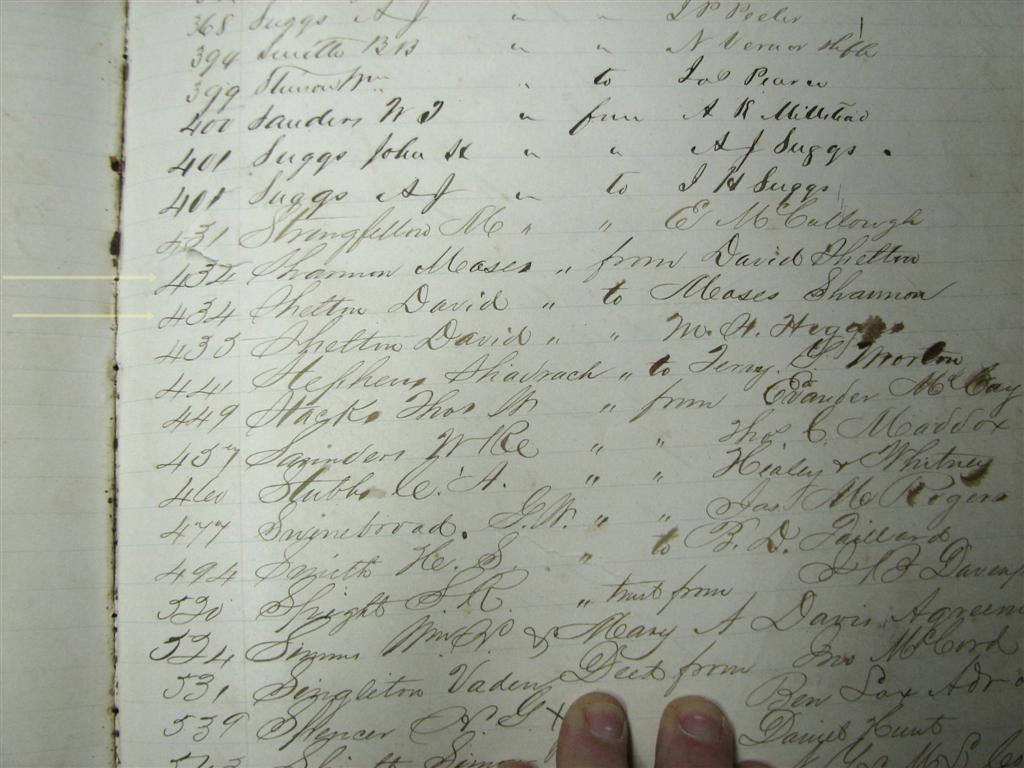 368 Suggs A J " " J P Peeler
394 Smith B B " " N Vernor
399 Wm " to Jas Pearce
400 Sanders W J " from A K Millstead
401 Suggs John H " " A J Suggs
401 Suggs A J " to J H Suggs
431 Stringfellow M " " E McCullough
434 Shannon Moses " from David Shelton
434 Shelton David " to Moses Shannon
435 Shelton David " " M. H.
441 Stephens Shadrach " to Morton
449 Stack Thos W " from Evander McCay
457 Saunders W " " Thos. C. Maddox
460 Stubbs C. A. " " Healey & Whitney
477 Swinebroad. G. W. " " Jas. M Rogers
494 Smith H. S. " to B. D. Gaillard
520 Speight S. R. " trust from
524 Simms Wm & Mary A Davis
531 Singleton Vaden Deed from Jno McCord
539 Spencer Ben Lax Adr
Daniel Hunt